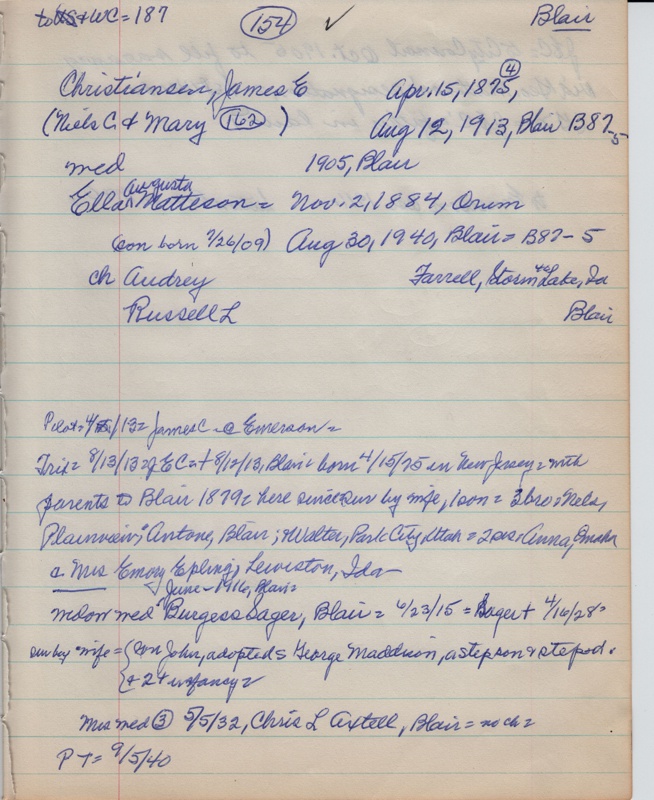 to US & WC = 187 154 ✓ Blair
Christiansen, James E Apr. 15, 1875, ④
(Niels C & Mary 162 ) Aug 12, 1913, Blair B87-5
med 1905, Blair
Ella Augusta Matteson = Nov. 2, 1884, Orum
(son born 7/26/09) Aug 30, 1940, Blair = B87-5
ch Audrey Farrell, Storm Lake, Ia
Russell L Blair
Pilot = 4/ /13 = James C - @ Emerson =
Trib = 8/13/13 = JEC = + 8/12/13, Blair = born 4/15/75 in New Jersey = with
parents to Blair 1879 = here since = sur by wife, 1 son = 3 bro: Nels,
Plainview; Antone, Blair; & Walter, Park City, Utah = 2 sis: Anna, Omaha
& Mrs Emory Epling, Lewiston, Ida -
June - 1916, Blair =
widow med Burgess Sager, Blair = 6/23/15 = Sager + 4/16/28 =
sur by wife = { son John, adopted s George Maddison, a stepson & stepd.
{ + 2 + infancy =
Mrs med ③ 5/5/32, Chris L Axtell, Blair = no ch =
P T = 9/5/40